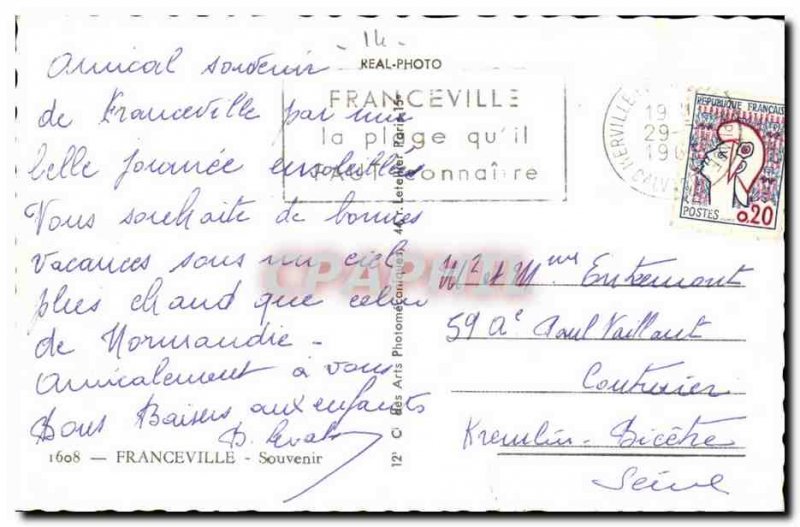 14
REAL-PHOTO
Amical souvenir
de Franceville par une
belle journée ensoleillée
Vous souhaite de bonnes
vacances sous un ciel
plus chaud que celui
de Normandie -
Amicalement à vous
Bons Baisers aux enfants
1608 — FRANCEVILLE - Souvenir
12 Cie des Arts Photomécaniques, 44, r. Letellier Paris-15e
FRANCEVILLE
la plage qu'il
FAUT connaître
19
29-
196
CALV
REPUBLIQUE FRANÇAISE
POSTES 0,20
CPAPHIL
Mr et Mme Entremont
59 Ae Paul Vaillant
Couturier
Kremlin-Bicêtre
Seine